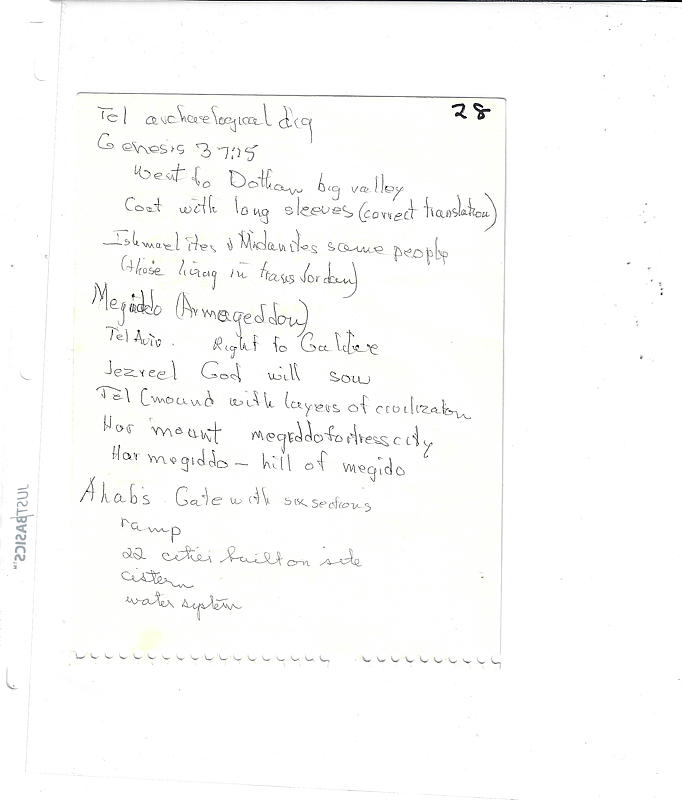 28
Tel archaeological dig
Genesis 37:25
Went to Dothan big valley
Coat with long sleeves (correct translation)
Ishmaelites & Midanites same people
(those living in trans Jordan)
Megiddo (Armageddon)
Tel Aviv. Right to Galilee
Jezreel God will sow
Tel (mound with layers of civilization
Har mount megiddo fortress city
Har megiddo – hill of megido
Ahab's Gate with six sections
ramp
22 cities built on site
cistern
water system
JUSTBASICS™